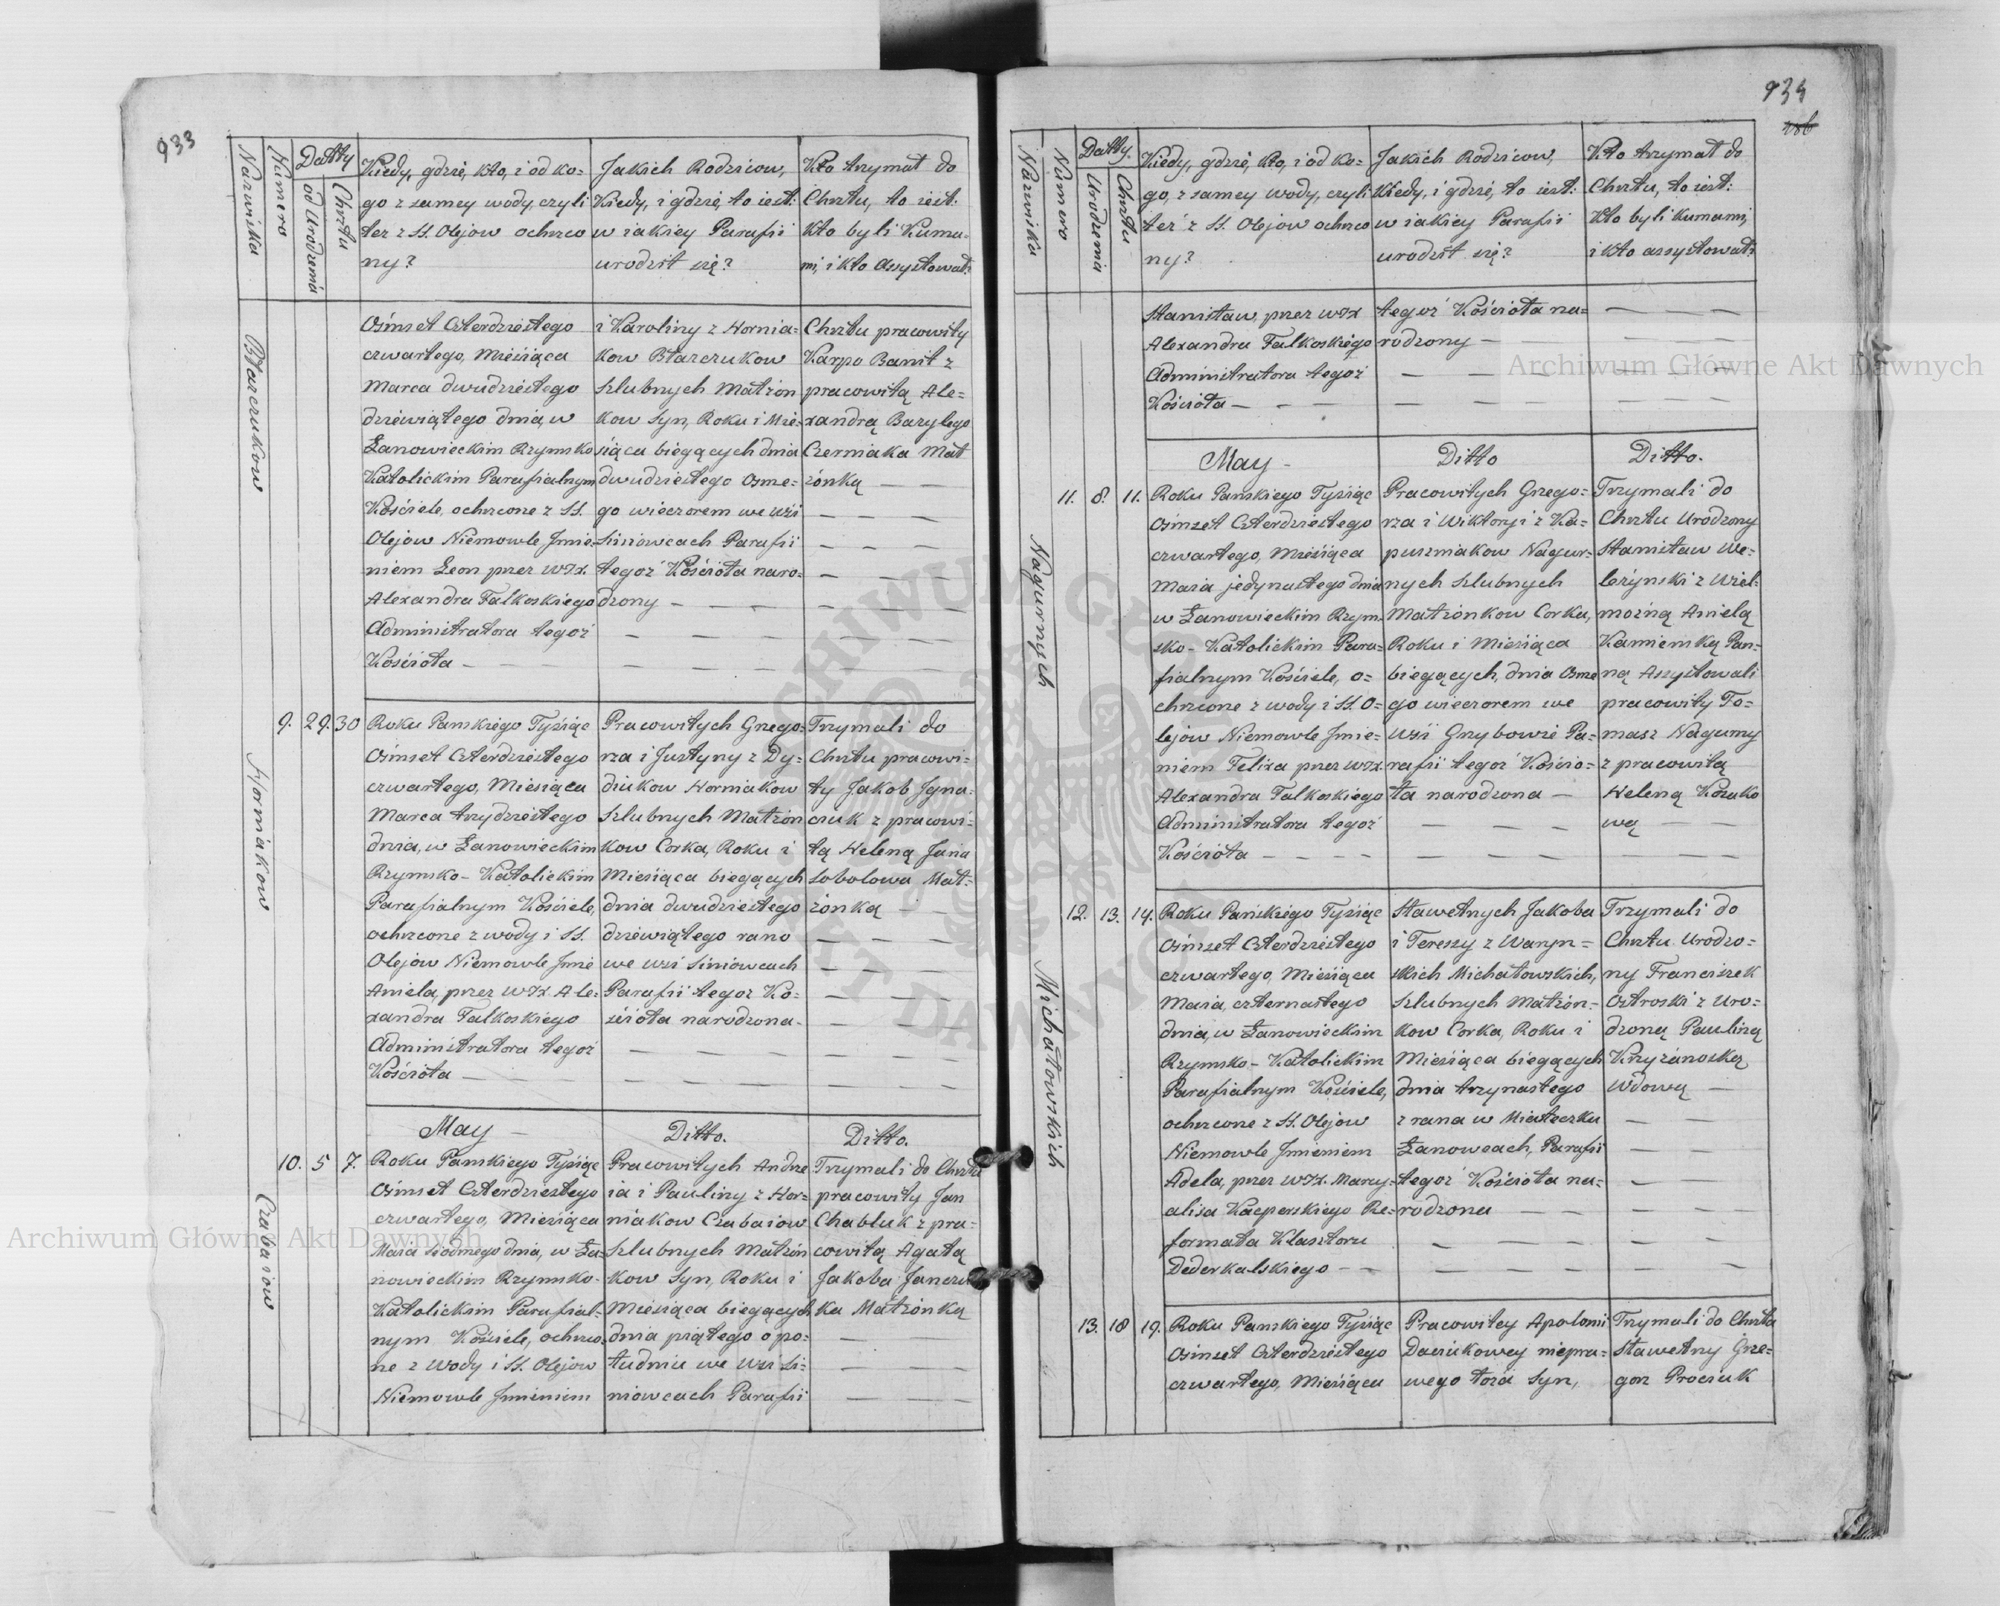 933
Nazwiska
Numero
Datty
od Urodzenia
Chrztu
Kiedy, gdzie, kto, i od ko-
go z samey wody, czyli
też z SS. Olejow ochrzco
ny?
Jakich Rodzicow,
Kiedy, i gdzie, to iest:
w iakiey Parafii
urodził się?
Kto trzymał do
Chrztu, to iest:
Kto byli Kuma-
mi, i kto assystował?
Błaszczukow
Ośmset Czterdziestego
czwartego, Miesiąca
Marca dwudziestego
dziewiątego dnia, w
Łanowieckim Rzymsko
Katolickim Parafialnym
Kościele, ochrzcone z SS.
Olejow Niemowle Jmie-
niem Leon przez WJX.
Alexandra Falkoskiego
Administratora tegoż
Kościoła
i Karoliny z Hornia-
kow Błaszczukow
Szlubnych Małżon
kow Syn, Roku i Mie-
siąca biegących dnia
dwudziestego Osme-
go wieczorem we wsi
Siniowcach Parafii
tegoż Kościoła naro-
dzony
Chrztu pracowity
Karpo Banit z
pracowitą Ale-
xandrą Bazylego
Czerniaka Mał
żonką
9. 29. 30
Horniakow
Roku Panskiego Tysiąc
Ośmset Czterdziestego
czwartego, Miesiąca
Marca trzydziestego
dnia, w Łanowieckim
Rzymsko-Katolickim
Parafialnym Kościele,
ochrzcone z wody i SS.
Olejow Niemowle Jmie
Aniela, przez WJX. Ale-
xandra Falkoskiego
Administratora tegoż
Kościoła
Pracowitych Grzego-
rza i Justyny z Dy-
diukow Horniakow
Szlubnych Małżon
kow Corka, Roku i
Miesiąca biegących
dnia dwudziestego
dziewiątego rano
we wsi Siniowcach
Parafii tegoż Ko-
ścioła narodzona
Trzymali do
Chrztu pracowi-
ty Jakob Jgna-
czuk z pracowi-
tą Heleną Jana
Sobolowa Mał-
żonką
May
Ditto.
Ditto.
10. 5 7.
Czabaiow
Roku Panskiego Tysiąc
Ośmset Czterdziestego
czwartego, Miesiąca
Maia siodmego dnia, w Ła-
nowieckim Rzymsko-
Katolickim Parafial-
nym Kościele, ochrzco-
ne z Wody i SS. Olejow
Niemowle Jmieniem
Pracowitych Andrze
ia i Pauliny z Hor-
niakow Czabaiow
Szlubnych Małżon
kow Syn, Roku i
Miesiąca biegących
dnia piątego o po-
łudniu we wsi Si-
niowcach Parafii
Trzymali do Chrztu
pracowity Jan
Chabluk z pra-
cowitą Agatą
Jakoba
ka Małżonką
934
Nazwiska
Numero
Datty.
Urodzenia
Chrztu
Kiedy, gdzie, kto, i od ko-
go, z samey wody, czyli
też z SS. Olejow ochrzco
ny?
Jakich Rodzicow,
Kiedy, i gdzie, to iest:
w iakiey Parafii
urodził się?
Kto trzymał do
Chrztu, to iest:
Kto byli Kumami,
i kto assystował?
Stanisław, przez WJX
Alexandra Falkoskiego
Administratora tegoż
Kościoła
tegoż Kościoła na-
rodzony
May
Ditto
Ditto.
11. 8. 11.
Nagurnych
Roku Panskiego Tysiąc
Ośmset Czterdziestego
czwartego, Miesiąca
Maia, jedynastego dnia
w Łanowieckim Rzym-
sko-Katolickim Para-
fialnym Kościele, o-
chrzcone z wody i SS. O-
lejow Niemowle Jmie-
niem Felixa przez WJX.
Alexandra Falkoskiego
Administratora tegoż
Kościoła
Pracowitych Grzego-
rza i Wiktoryi z Ka-
puszniakow Nagur-
nych Szlubnych
Małżonkow Corka,
Roku i Miesiąca
biegących, dnia Osme
go wieczorem we
wsi Grzybowie Pa-
rafii tegoż Kościo-
ła narodzona
Trzymali do
Chrztu Urodzony
Stanisław We-
leżynski z Wiel-
możną Anielą
Kamienską Pan-
ną Assystowali
pracowity To-
masz Nagurny
z pracowitą
Heleną Kozako
wą
12. 13. 14.
Michałowskich
Roku Pańskiego Tysiąc
Ośmset Czterdziestego
czwartego, Miesiąca
Maia, czternastego
dnia, w Łanowieckim
Rzymsko-Katolickim
Parafialnym Kościele,
ochrzcone z SS. Olejow
Niemowle Jmieniem
Adela, przez WJX. Marcy-
alisa Kacperskiego Re-
formata Klasztoru
Dederkalskiego
Sławetnych Jakoba
i Teressy z Waryn-
skich Michałowskich,
Szlubnych Małżon-
kow Corka, Roku i
Miesiąca biegących
dnia trzynastego
z rana w Miasteczku
Łanowcach, Parafii
tegoż Kościoła na-
rodzona
Trzymali do
Chrztu Urodzo-
ny Franciszek
Ostroski z Uro-
dzoną Pauliną
Krzyżanoską
Wdową
13. 18 19.
Roku Panskiego Tysiąc
Ośmset Czterdziestego
czwartego, Miesiąca
Pracowitey Apolonii
Daciukowey niepra-
wego łoża Syn,
Trzymali do Chrztu
Sławetny Grze-
gorz Prociuk
Archiwum Główne Akt Dawnych
Archiwum Główne Akt Dawnych
Archiwum Główne Akt Dawnych